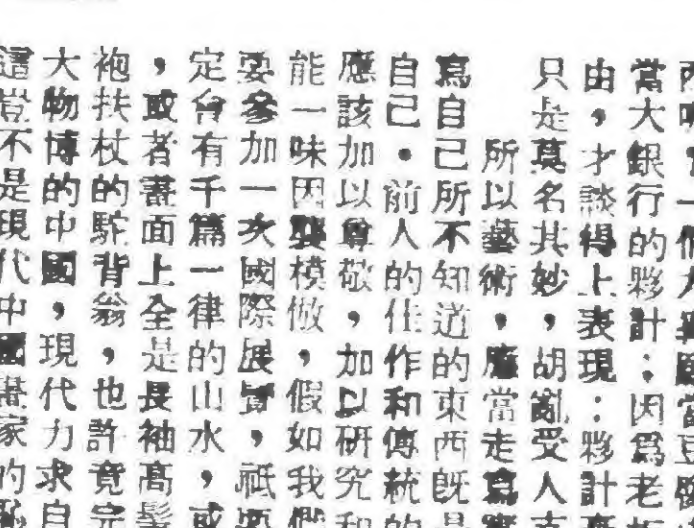 當大銀行的夥計：因爲老
由，才談得上表現：夥計
只是莫名其妙，胡亂受人支
所以藝術，應當走寫實
寫自己所不知道的東西既是
自己。前人的佳作和傳統的
應該加以尊敬，加以研究和
能一味因襲模倣，假如我們
要參加一次國際展覽，祇要
定會有千篇一律的山水，或
，或者畫面上全是長袖高髻
袍扶杖的駝背翁，也許竟完
大物博的中國，現代力求自
這豈不是現代中國畫家的恥